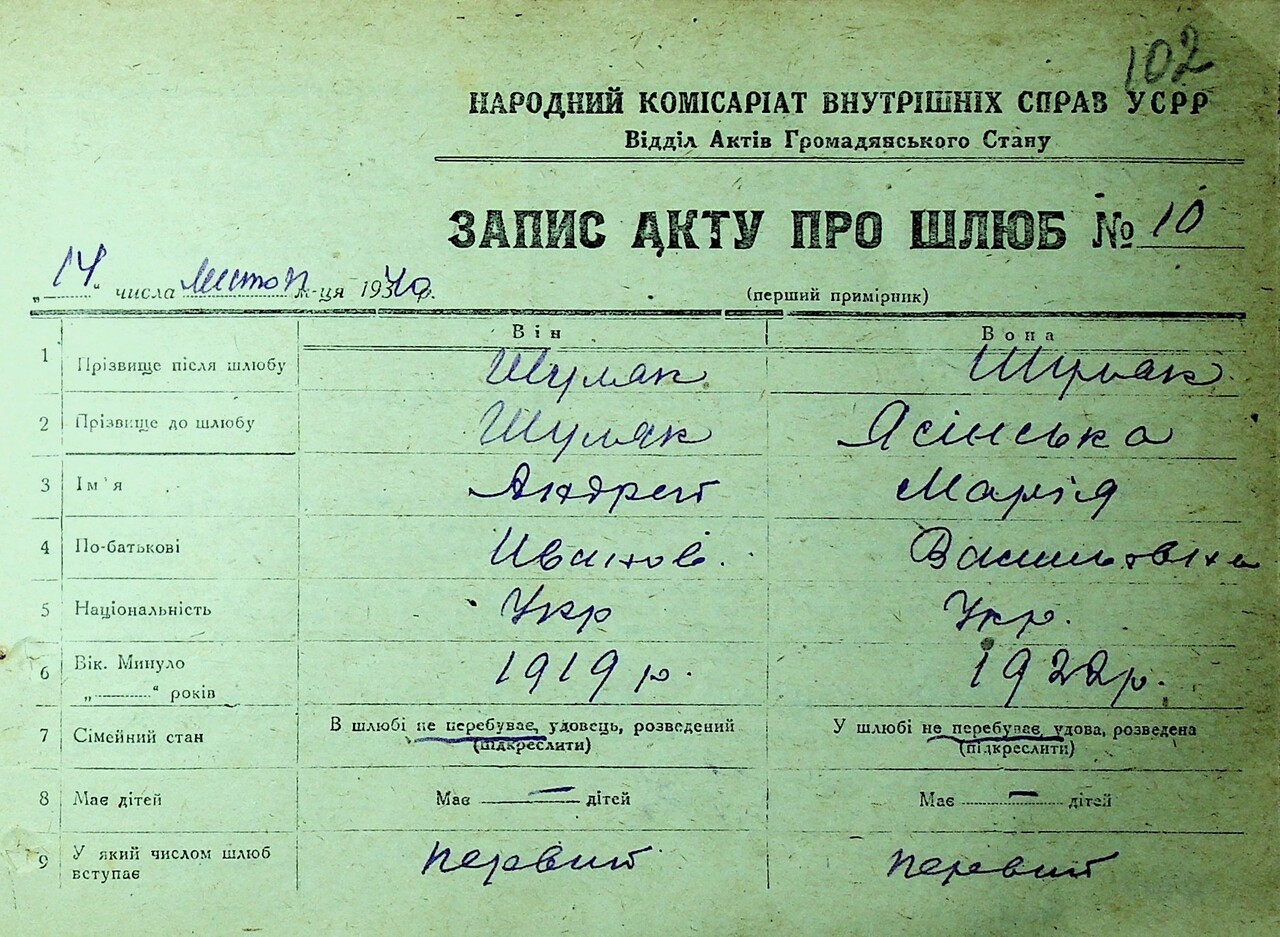 102
НАРОДНИЙ КОМІСАРІАТ ВНУТРІШНІХ СПРАВ УСРР
Відділ Актів Громадянського Стану
ЗАПИС АКТУ ПРО ШЛЮБ № 10
„14“ числа листоп м-ця 1940 р. (перший примірник)
Він Вона
1 Прізвище після шлюбу Шуляк Шуляк
2 Прізвище до шлюбу Шуляк Ясінська
3 Ім'я Андрей Марія
4 По-батькові Иванов. Васильовіна
5 Національність Укр Укр.
6 Вік. Минуло 1919 р. 1922 р.
„ “ років
7 Сімейний стан В шлюбі не перебуває, удовець, розведений У шлюбі не перебуває, удова, розведена
(підкреслити) (підкреслити)
8 Має дітей Має — дітей Має — дітей
9 У який числом шлюб первий первий
вступає